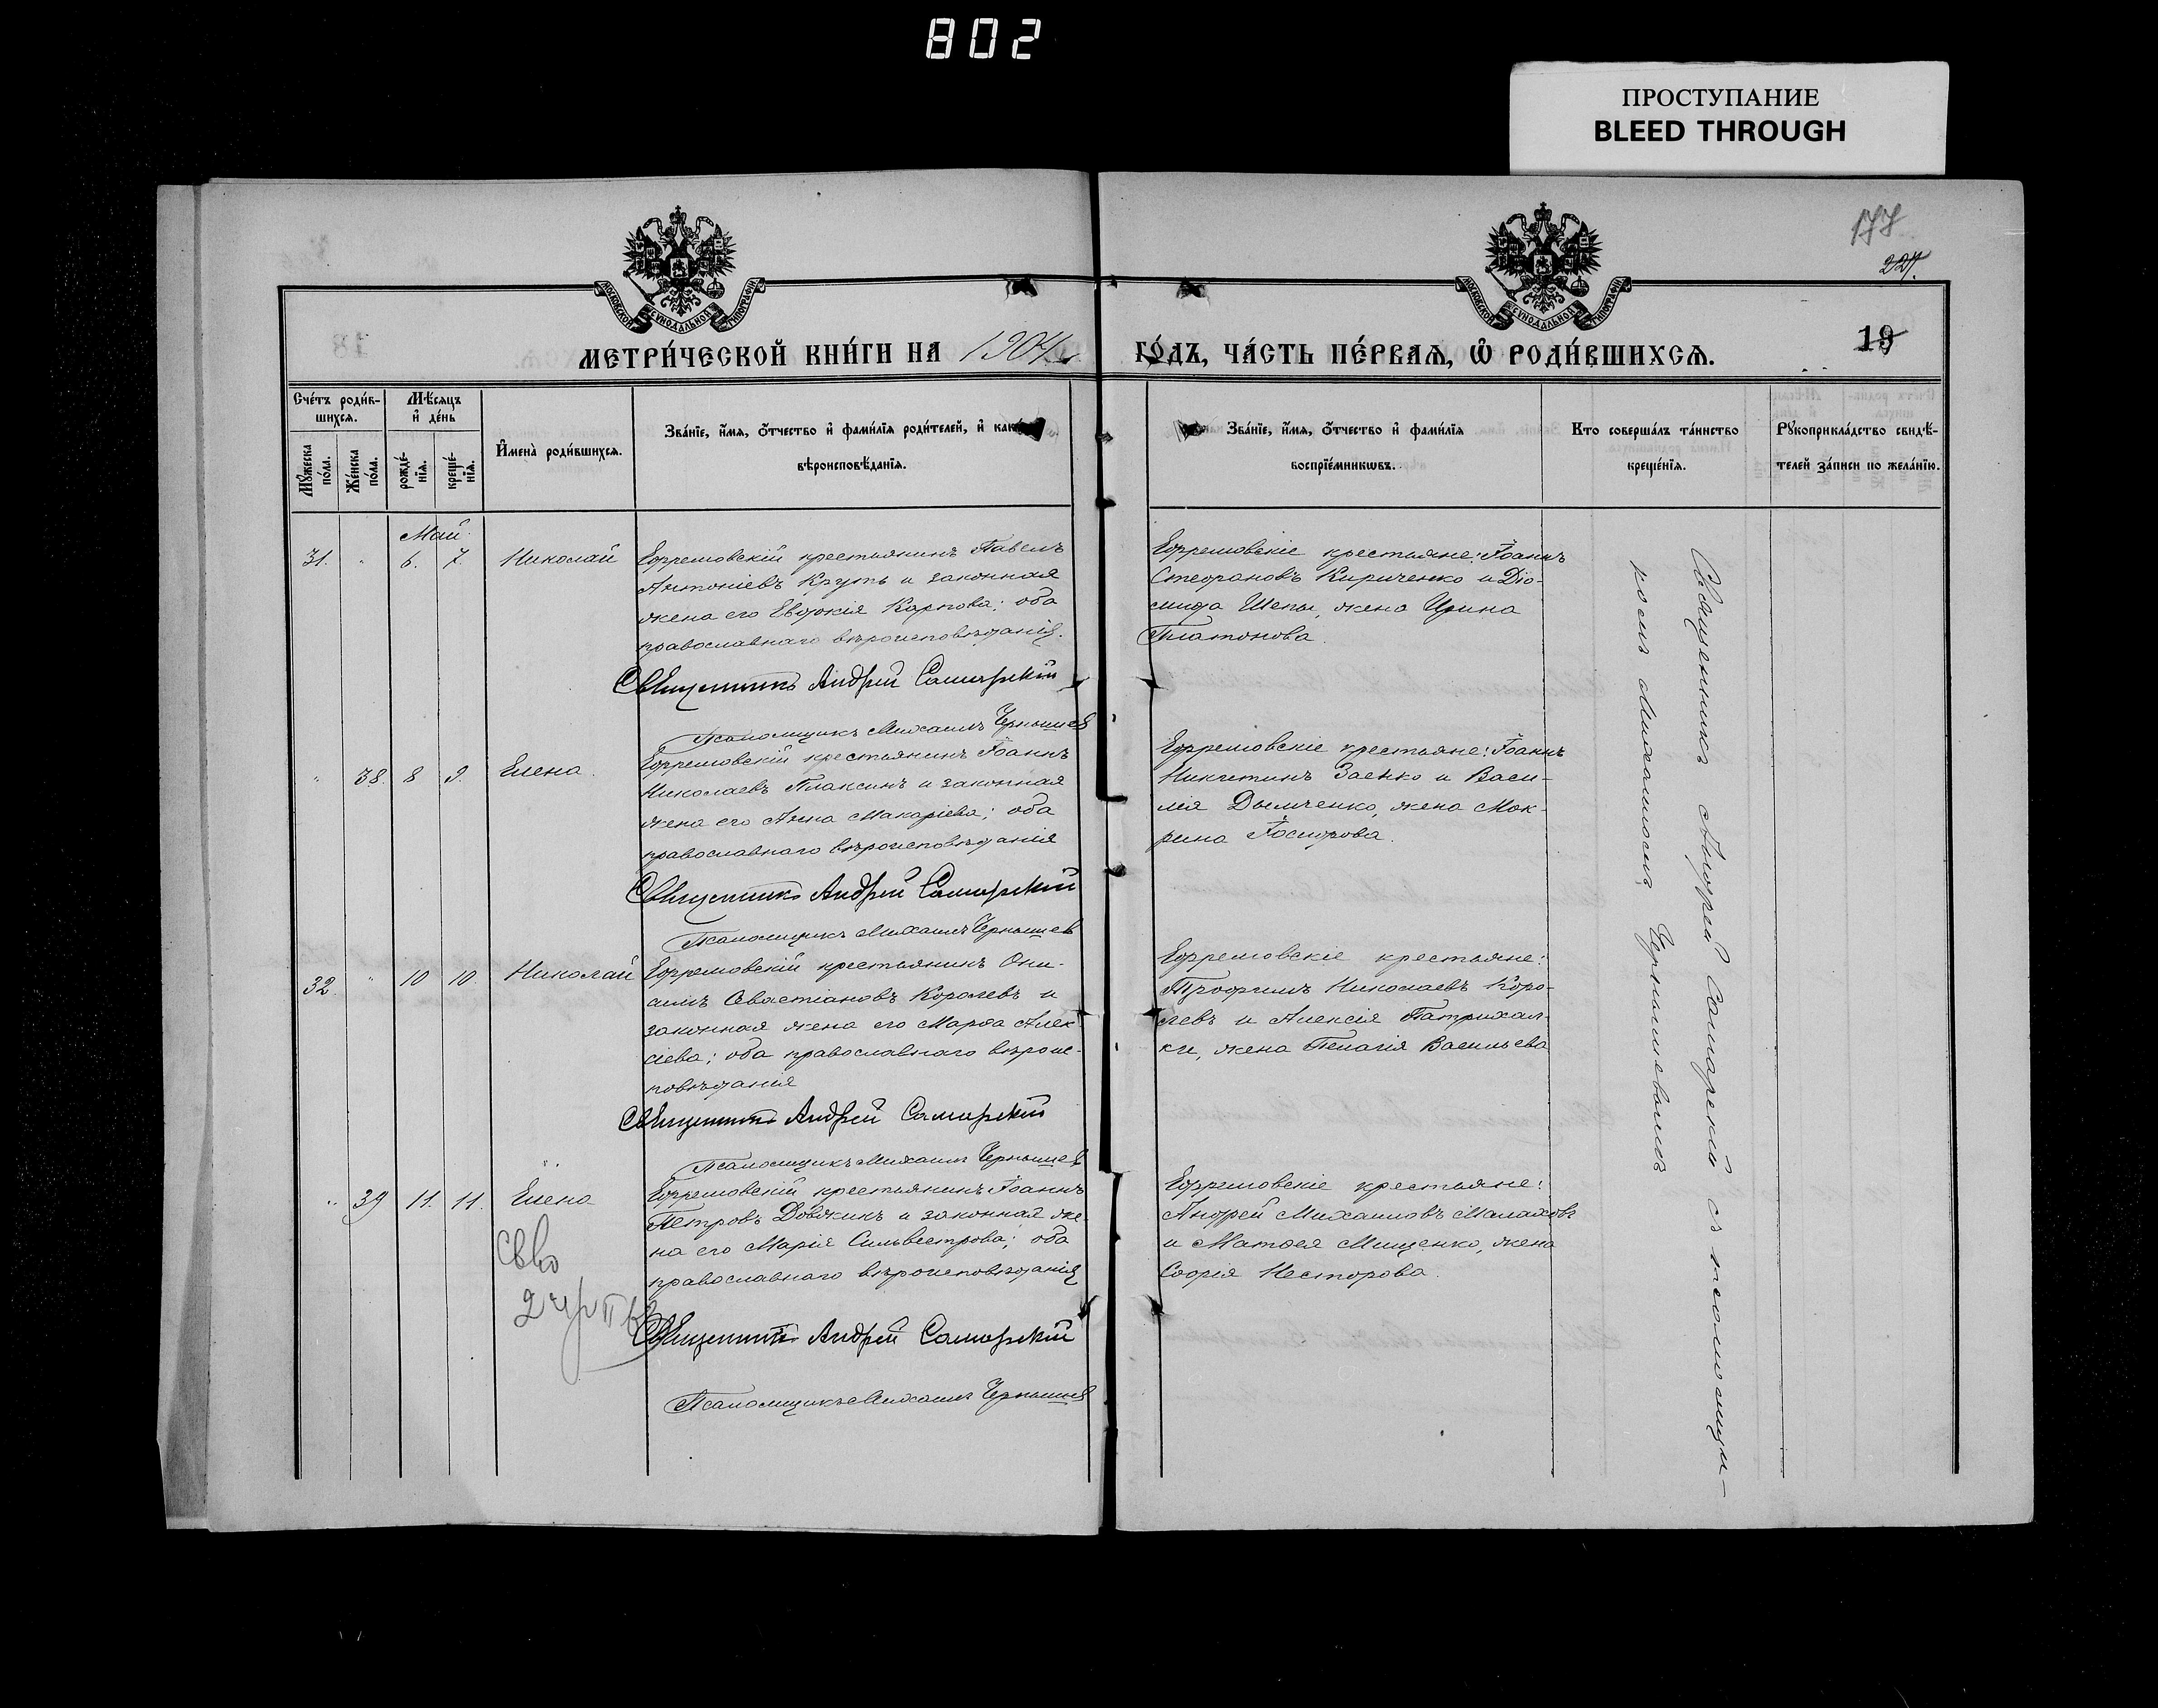 802
ПРОСТУПАНИЕ
BLEED THROUGH
177
227.
19
МОСКОВСКОЙ СѴНОДАЛЬНОЙ ТИПОГРАФІИ
МОСКОВСКОЙ СѴНОДАЛЬНОЙ ТИПОГРАФІИ
МЕТРИ́ЧЕСКОЙ КНИ́ГИ НА 1904
ГО́ДЪ, ЧА́СТЬ ПЕ́РВАѦ, Ѡ҆ РОДИ́ВШИХСѦ.
Сче́тъ роди́в-
шихсѧ.
Мꙋ́жеска
по́ла.
Же́нска
по́ла.
Мѣ́сѧцъ
и҆ де́нь
рожде́-
нїѧ.
креще́-
нїѧ.
И҆мена̀ роди́вшихсѧ.
Зва́нїе, и҆́мѧ, ѻ҆́тчество и҆ фами́лїѧ роди́телей, и҆
вѣроисповѣ́данїѧ.
Зва́нїе, и҆́мѧ, ѻ҆́тчество и҆ фами́лїѧ
воспрїе́мникѡвъ.
Кто соверша́лъ та́инство
креще́нїѧ.
Рꙋкоприкла́дство свидѣ́-
телей за́писи по жела́нїю.
Май
31. " 6. 7. Николай
Ефремовскій крестьянинъ Павелъ
Антоніевъ Круть и законная
жена его Евдокія Карпова; оба
православнаго вѣроисповѣданія.
Священникъ Андрей Самарскій
Псаломщикъ Михаилъ Чернышев
Ефремовскіе крестьяне: Іоаннъ
Стефановъ Кириченко и Діо-
мида Шепы, жена Ирина
Платонова.
" 38. 8 9. Елена.
Ефремовскій крестьянинъ Іоаннъ
Николаевъ Плаксинъ и законная
жена его Анна Макаріева; оба
православнаго вѣроисповѣданія
Священникъ Андрей Самарскій
Псаломщикъ Михаилъ Чернышев
Ефремовскіе крестьяне: Іоаннъ
Никитинъ Заенко и Васи-
лія Дымченко, жена Мок-
рина
32. " 10 10. Николай
Ефремовскій крестьянинъ Они-
симъ Севастіановъ Королевъ и
законная жена его Марѳа Алек-
сіева; оба православнаго вѣроис-
повѣданія
Священникъ Андрей Самарскій
Псаломщикъ Михаилъ Чернышев
Ефремовскіе крестьяне:
Трофимъ Николаевъ Коро-
левъ и Алексія Патрихал-
ки, жена Пелагія Васильева
" 39 11. 11. Елена
Ефремовскій крестьянинъ Іоаннъ
Петровъ Довжикъ и законная же-
на его Марія Сильвестрова; оба
православнаго вѣроисповѣданія
Священникъ Андрей Самарскій
Псаломщикъ Михаилъ Чернышев
Ефремовскіе крестьяне:
Андрей Михаиловъ Малаховъ
и Матѳея Мищенко, жена
Софія Несторова.
Священникъ Андрей Самарскій съ псаломщи-
комъ Михаиломъ Чернышевымъ